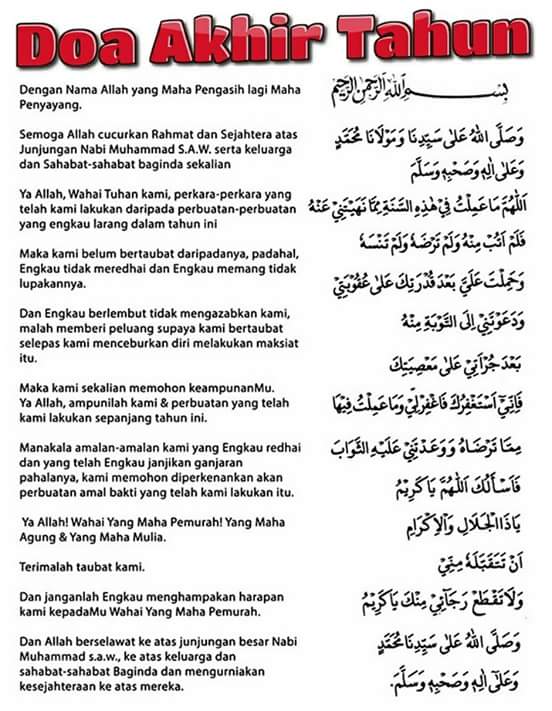 Doa Akhir Tahun
Dengan Nama Allah yang Maha Pengasih lagi Maha
Penyayang.
Semoga Allah cucurkan Rahmat dan Sejahtera atas
Junjungan Nabi Muhammad S.A.W. serta keluarga
dan Sahabat-sahabat baginda sekalian
Ya Allah, Wahai Tuhan kami, perkara-perkara yang
telah kami lakukan daripada perbuatan-perbuatan
yang engkau larang dalam tahun ini
Maka kami belum bertaubat daripadanya, padahal,
Engkau tidak meredhai dan Engkau memang tidak
lupakannya.
Dan Engkau berlembut tidak mengazabkan kami,
malah memberi peluang supaya kami bertaubat
selepas kami menceburkan diri melakukan maksiat
itu.
Maka kami sekalian memohon keampunanMu.
Ya Allah, ampunilah kami & perbuatan yang telah
kami lakukan sepanjang tahun ini.
Manakala amalan-amalan kami yang Engkau redhai
dan yang telah Engkau janjikan ganjaran
pahalanya, kami memohon diperkenankan akan
perbuatan amal bakti yang telah kami lakukan itu.
Ya Allah! Wahai Yang Maha Pemurah! Yang Maha
Agung & Yang Maha Mulia.
Terimalah taubat kami.
Dan janganlah Engkau menghampakan harapan
kami kepadaMu Wahai Yang Maha Pemurah.
Dan Allah berselawat ke atas junjungan besar Nabi
Muhammad s.a.w., ke atas keluarga dan
sahabat-sahabat Baginda dan mengurniakan
kesejahteraan ke atas mereka.
بِسْمِ اللهِ الرَّحْمٰنِ الرَّحِيْمِ
وَصَلَّى اللهُ عَلٰى سَيِّدِنَا وَمَوْلَانَا مُحَمَّدٍ
وَعَلٰى اٰلِهٖ وَصَحْبِهٖ وَسَلَّمَ
اَللّٰهُمَّ مَاعَمِلْتُ فِيْ هٰذِهِ السَّنَةِ مِمَّا نَهَيْتَنِيْ عَنْهُ
فَلَمْ اَتُبْ مِنْهُ وَلَمْ تَرْضَهُ وَلَمْ تَنْسَهُ
وَحَمِلْتَ عَلَيَّ بَعْدَ قُدْرَتِكَ عَلٰى عُقُوْبَتِيْ
وَدَعَوْتَنِيْ اِلَى التَّوْبَةِ مِنْهُ
بَعْدَ جُرْاَتِيْ عَلٰى مَعْصِيَتِكَ
فَاِنِّيْ اَسْتَغْفِرُكَ فَاغْفِرْلِيْ وَمَاعَمِلْتُ فِيْهَا
مِمَّا تَرْضَاهُ وَوَعَدْتَنِيْ عَلَيْهِ الثَّوَابَ
فَاَسْأَلُكَ اللّٰهُمَّ يَاكَرِيْمُ
يَاذَاالْجَلَالِ وَالْاِكْرَامِ
اَنْ تَتَقَبَّلَهُ مِنِّيْ
وَلَاتَقْطَعْ رَجَآئِيْ مِنْكَ يَاكَرِيْمُ
وَصَلَّى اللهُ عَلٰى سَيِّدِنَا مُحَمَّدٍ
وَعَلٰى اٰلِهٖ وَصَحْبِهٖ وَسَلَّمَ.